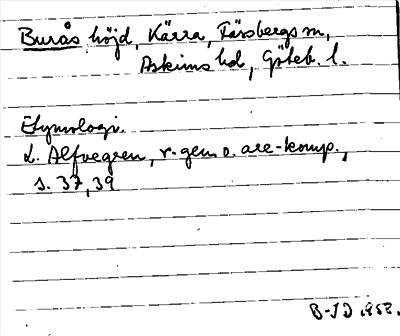 Burås höjd, Kärra, Fässbergs sn,
Askims hd, Göteb. l.
Etymologi.
L. Alfvegren, r-gen o. are-komp.,
s. 37, 39
B-SD 1958.